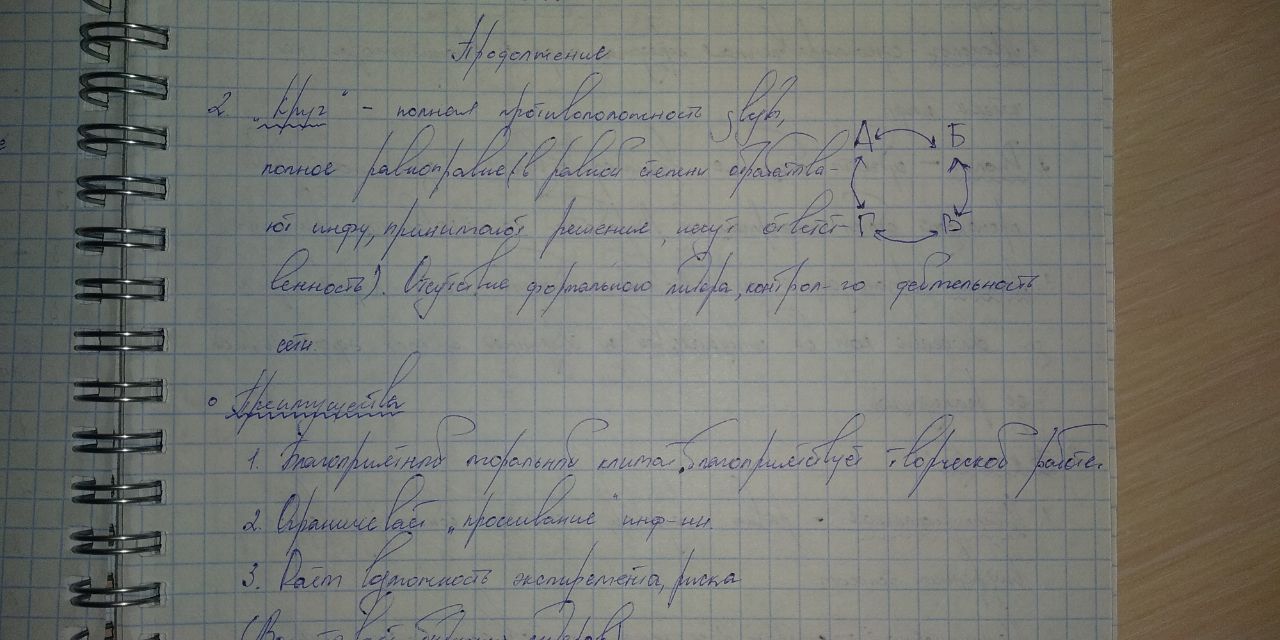 Продолжение
2. „Круг" – полная противоположность звузы,
А Б
полное равноправие (в равной степени обрабатыва-
ют инфу, принимают решение, несут ответст-
Г В
венность). Отсутствие формального лидера, контрол-го деятельность
сети.
Преимущества
1. Благоприятный моральный климат, благоприятствует творческой работе.
2. Ограничевает „просеивание" инф-ии.
3. Даёт возможность экспиремента, риска